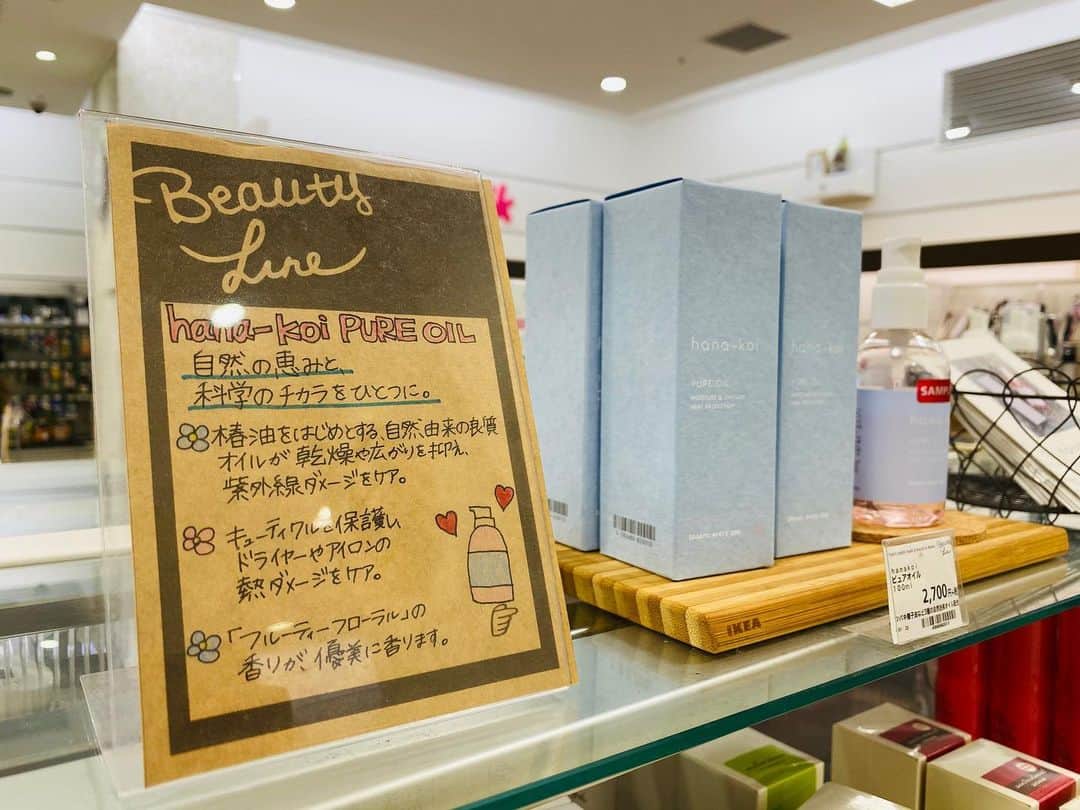 Beauty
Line
hana-koi PURE OIL
自然の恵みと、
科学のチカラをひとつに。
椿油をはじめとする、自然由来の良質
オイルが乾燥や広がりを抑え、
紫外線ダメージをケア。
キューティクルを保護し、
ドライヤーやアイロンの
熱ダメージをケア。
「フルーティーフローラル」の
香りが、優美に香ります。
hana-koi
PURE OIL
hana-koi
SAMPL
IKEA
hanakoi
ピュアオイル
100ml
2,700円+税